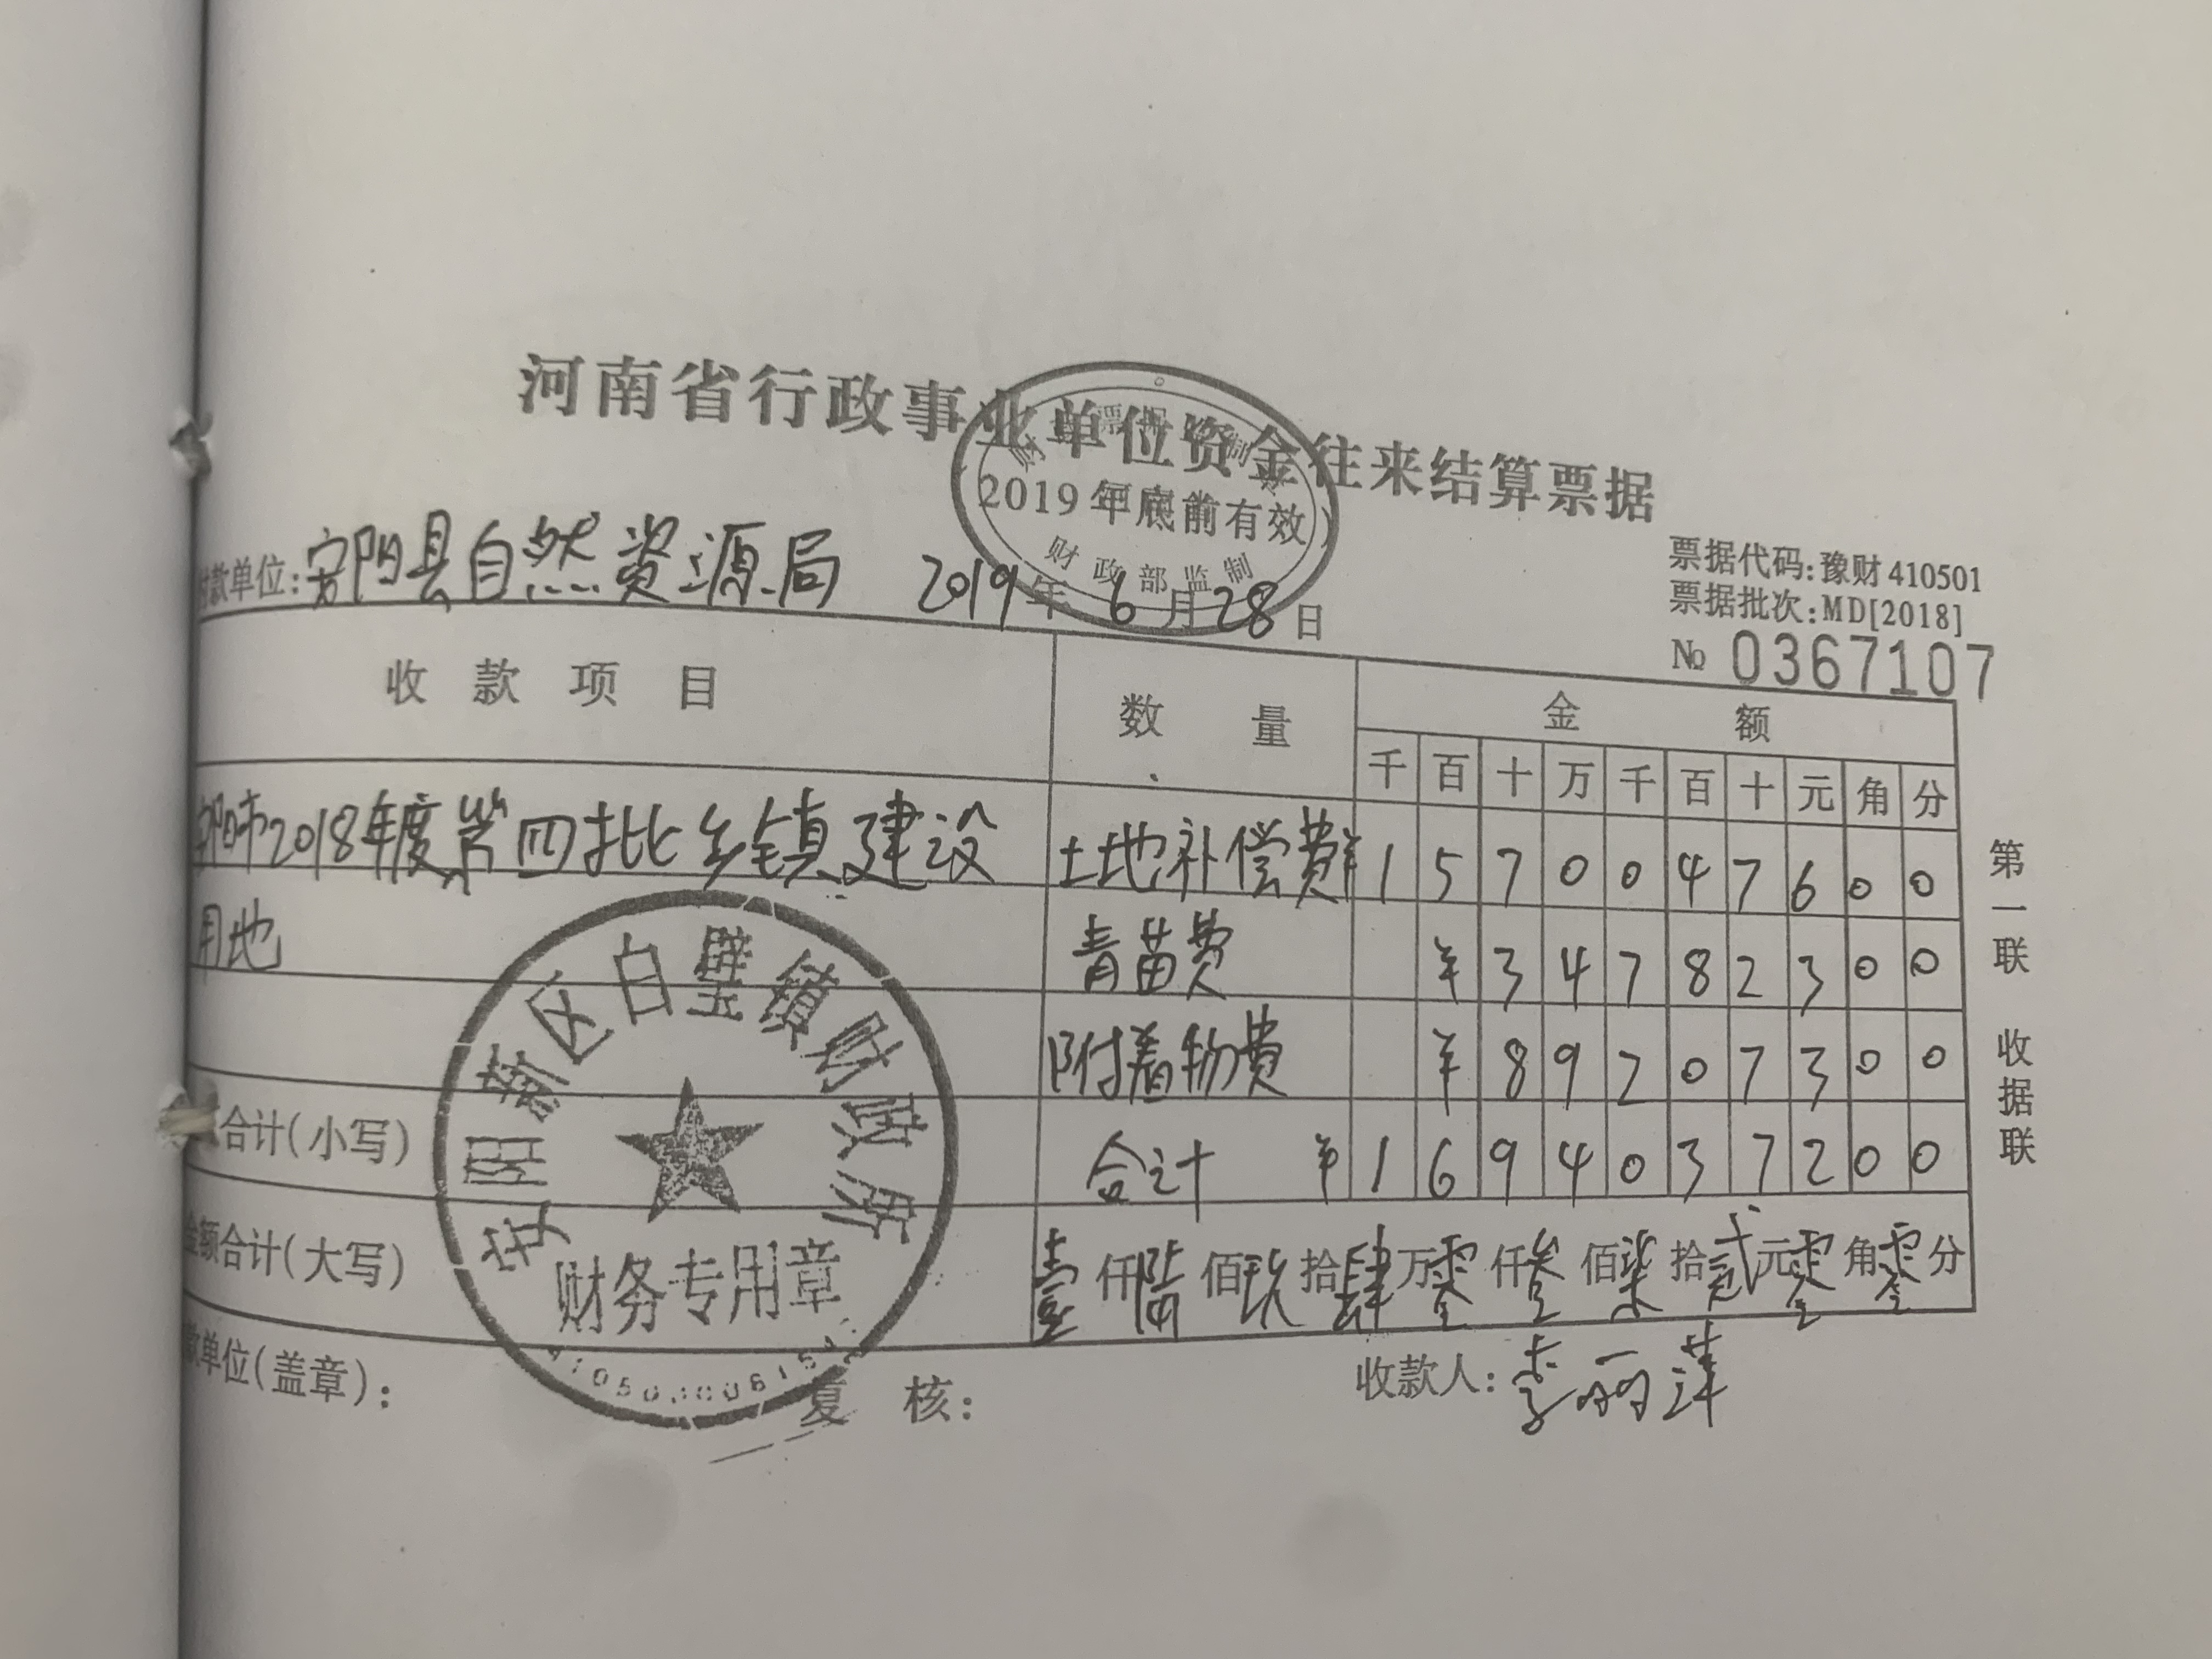 河南省行政事业单位资金往来结算票据
2019年底前有效
财政部监制
付款单位:安阳县自然资源局 2019年6月28日
票据代码:豫财410501
票据批次:MD[2018]
№ 0367107
收款项目 数量 金额
千百十万千百十元角分
阳市2018年度第四批乡镇建设 土地补偿费 ¥1570047600
用地 青苗费 ¥34782300
附着物费 ¥89207300
合计(小写) 合计 ¥1694037200
金额合计(大写) 壹仟陆佰玖拾肆万零仟叁佰柒拾贰元零角零分
款单位(盖章): 复核: 收款人:李丽萍
安阳新区白璧镇财政所
财务专用章
第一联 收据联